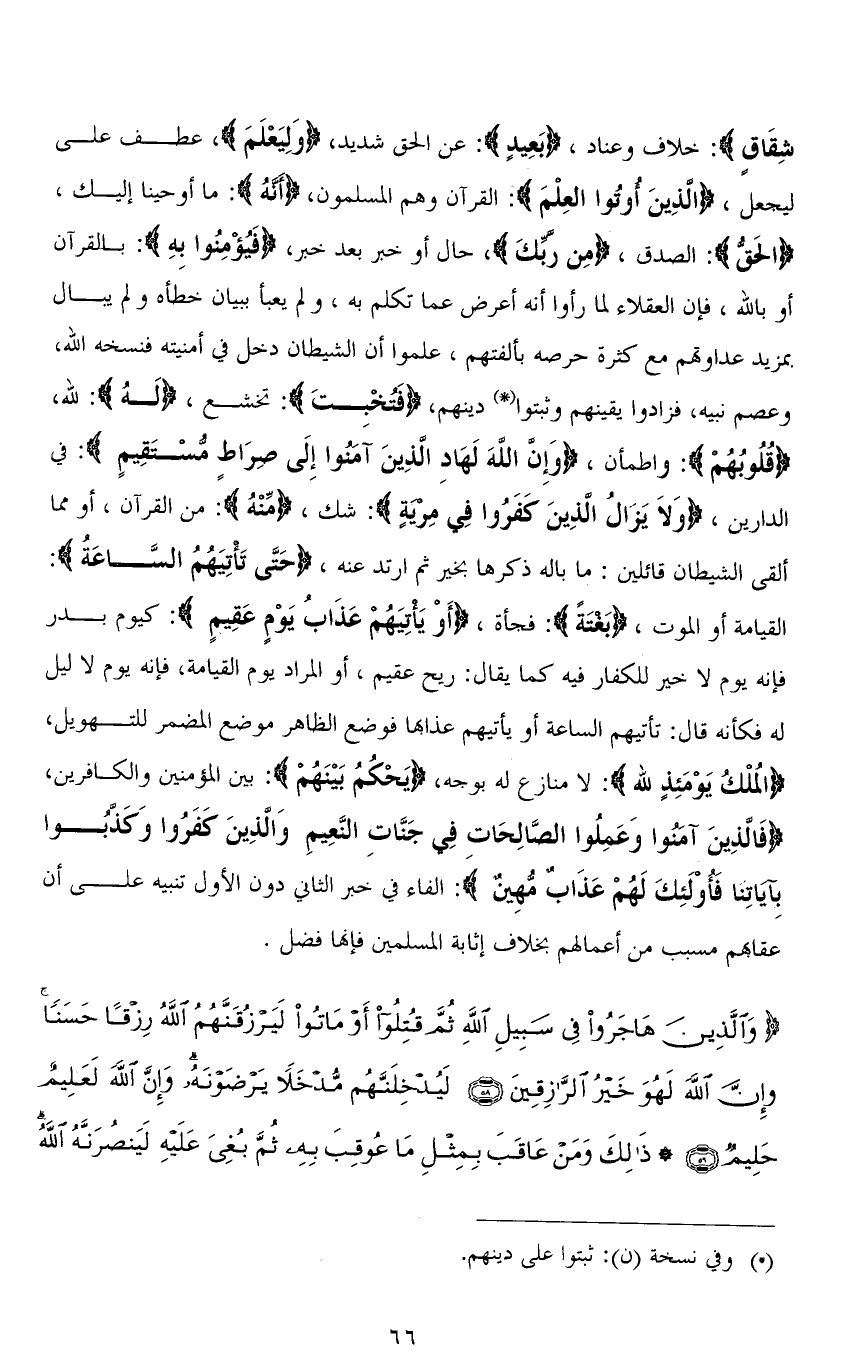 شِقَاقٍ ﴾: خلاف وعناد ، ﴿بَعِيدٍ﴾: عن الحق شديد، ﴿وَلِيَعْلَمَ ﴾، عطــــف علــى
ليجعل ، ﴿الَّذِينَ أُوتُوا العِلْمَ ﴾: القرآن وهم المسلمون، ﴿أَنَّهُ ﴾: ما أوحينا إليــك ،
﴿الحَقُّ ﴾: الصدق ، ﴿مِن رَّبِّكَ﴾، حال أو خبر بعد خبر، ﴿فَيُؤْمِنُوا بِهِ ﴾: بــالقرآن
أو بالله ، فإن العقلاء لما رأوا أنه أعرض عما تكلم به ، ولم يعبأ ببيان خطأه ولم يبــــال
بمزيد عداوتهم مع كثرة حرصه بألفتهم ، علموا أن الشيطان دخل في أمنيته فنسخه الله،
وعصم نبيه، فزادوا يقينهم وثبتوا(*) دينهم، ﴿فَتُخْبِـــتَ ﴾: تخشــع ، ﴿لَــهُ ﴾: لله،
﴿قُلُوبُهُمْ ﴾: واطمأن ، ﴿وَإِنَّ اللَّهَ لَهَادِ الَّذِينَ آمَنُوا إِلَى صِرَاطٍ مُّسْــتَقِيمٍ ﴾: في
الدارين ، ﴿وَلاَ يَزَالُ الَّذِينَ كَفَرُوا فِي مِرْيَةٍ ﴾: شك ، ﴿مِّنْهُ ﴾: من القرآن ، أو مما
ألقى الشيطان قائلين : ما باله ذكرها بخير ثم ارتد عنه ، ﴿حَتَّى تَأْتِيَهُمُ السَّــاعَةُ ﴾:
القيامة أو الموت ، ﴿بَغْتَةً ﴾: فجأة ، ﴿أَوْ يَأْتِيَهُمْ عَذَابُ يَوْمٍ عَقِيمٍ ﴾: كيوم بـــدر
فإنه يوم لا خير للكفار فيه كما يقال: ريح عقيم ، أو المراد يوم القيامة، فإنه يوم لا ليل
له فكأنه قال: تأتيهم الساعة أو يأتيهم عذابها فوضع الظاهر موضع المضمر للتــهويل،
﴿الْمُلْكُ يَوْمَئِذٍ لله ﴾: لا منازع له بوجه، ﴿يَحْكُمُ بَيْنَهُمْ ﴾: بين المؤمنين والكــافرين،
﴿فَالَّذِينَ آمَنُوا وَعَمِلُوا الصَّالِحَاتِ فِي جَنَّاتِ النَّعِيمِ وَالَّذِينَ كَفَرُوا وَكَذَّبُـــوا
بِآيَاتِنَا فَأُوْلَئِكَ لَهُمْ عَذَابٌ مُّهِينٌ ﴾: الفاء في خبر الثاني دون الأول تنبيه علـــى أن
عقابهم مسبب من أعمالهم بخلاف إثابة المسلمين فإنها فضل .
﴿ وَٱلَّذِينَ هَاجَرُوا۟ فِى سَبِيلِ ٱللَّهِ ثُمَّ قُتِلُوٓا۟ أَوْ مَاتُوا۟ لَيَرْزُقَنَّهُمُ ٱللَّهُ رِزْقًا حَسَنًا ۚ
وَإِنَّ ٱللَّهَ لَهُوَ خَيْرُ ٱلرَّٰزِقِينَ ٥٨ لَيُدْخِلَنَّهُم مُّدْخَلًا يَرْضَوْنَهُۥ ۗ وَإِنَّ ٱللَّهَ لَعَلِيمٌ
حَلِيمٌ ٥٩ * ذَٰلِكَ وَمَنْ عَاقَبَ بِمِثْلِ مَا عُوقِبَ بِهِۦ ثُمَّ بُغِىَ عَلَيْهِ لَيَنصُرَنَّهُ ٱللَّهُ ۗ
(*) وفي نسخة (ن): ثبتوا على دينهم.
٦٦